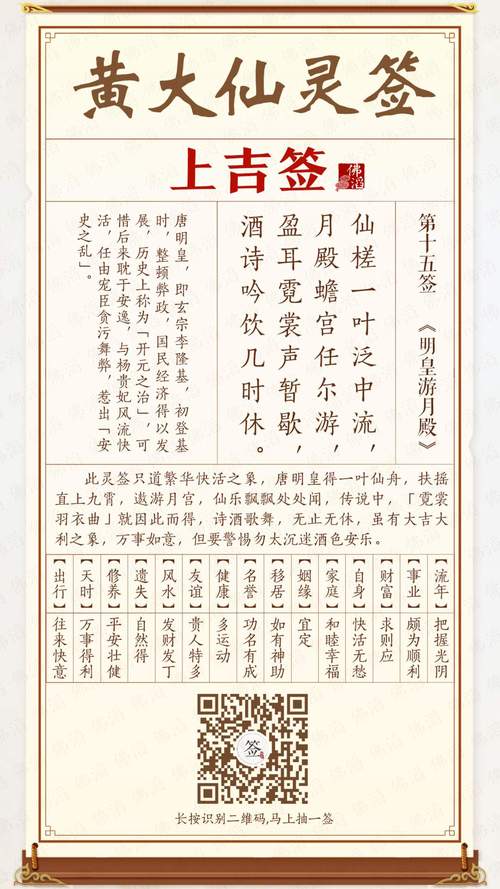 黄大仙灵签
上吉签
佛滔
第十五签 《明皇游月殿》
仙槎一叶泛中流，
月殿蟾宫任尔游，
盈耳霓裳声暂歇，
酒诗吟饮几时休。
唐明皇，即玄宗李隆基，初登基
时，整顿弊政，国民经济得以发
展，历史上称为「开元之治」，可
惜后来耽于安逸，与杨贵妃风流快
活，任由宠臣贪污舞弊，惹出「安
史之乱」。
此灵签只道繁华快活之象，唐明皇得一叶仙舟，扶摇
直上九霄，遨游月宫，仙乐飘飘处处闻，传说中，「霓裳
羽衣曲」就因此而得，诗酒歌舞，无止无休，虽有大吉大
利之象，万事如意，但要警惕勿太沉迷酒色安乐。
【流年】把握光阴
【事业】颇为顺利
【财富】求则应
【自身】快活无愁
【家庭】和睦幸福
【姻缘】宜定
【移居】如有神助
【名誉】功名有成
【健康】多运动
【友谊】贵人特多
【风水】发财发丁
【遗失】自然得
【修养】平安壮健
【天时】万事得利
【出行】往来快意
签
长按识别二维码,马上抽一签